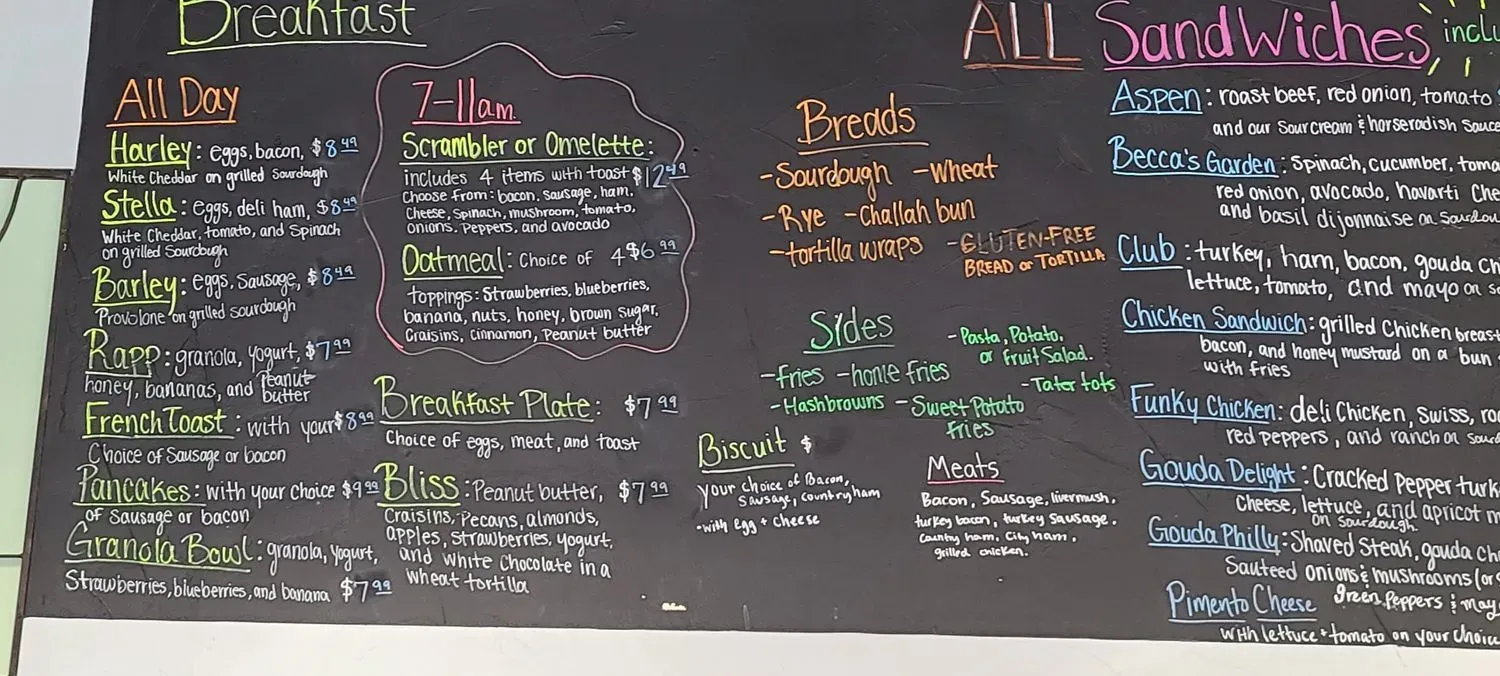 Breakfast
All Day
Harley: eggs, bacon, $8.49
White Cheddar on grilled Sourdough
Stella: eggs, deli ham, $8.49
White Cheddar, tomato, and Spinach
on grilled Sourdough
Barley: eggs, Sausage, $8.49
Provolone on grilled sourdough
Rapp: granola, yogurt, $7.99
honey, bananas, and Peanut
butter
French Toast: with your $8.99
Choice of Sausage or bacon
Pancakes: with your choice $9.99
of Sausage or bacon
Granola Bowl: granola, yogurt,
Strawberries, blueberries, and banana $7.99
7-11am
Scrambler or Omelette:
includes 4 items with toast $12.49
Choose from: bacon, sausage, ham,
Cheese, Spinach, mushroom, tomato,
onions, Peppers, and avocado
Oatmeal: Choice of 4 $6.99
toppings: Strawberries, blueberries,
banana, nuts, honey, brown sugar,
Craisins, cinnamon, Peanut butter
Breakfast Plate: $7.99
Choice of eggs, meat, and toast
Bliss: Peanut butter, $7.99
Craisins, Pecans, almonds,
apples, strawberries, yogurt,
and white Chocolate in a
wheat tortilla
Breads
-Sourdough -Wheat
-Rye -Challah bun
-tortilla wraps -GLUTEN-FREE
BREAD or TORTILLA
Sides
-fries -home fries
-Hashbrowns -Sweet Potato
fries
-Pasta, Potato,
or fruit Salad.
-Tater tots
Biscuit $
your choice of Bacon,
Sausage, country ham
•with Egg + cheese
Meats
Bacon, Sausage, livermush,
turkey bacon, turkey Sausage,
Country ham, City ham,
grilled chicken.
ALL Sandwiches inclu
Aspen: roast beef, red onion, tomato
and our Sour cream & horseradish Sauce
Becca's Garden: Spinach, cucumber, toma
red onion, avocado, havarti Che
and basil dijonnaise on Sourdou
Club: turkey, ham, bacon, gouda Ch
lettuce, tomato, and mayo on so
Chicken Sandwich: grilled Chicken breast
bacon, and honey mustard on a bun
with fries
Funky Chicken: deli Chicken, Swiss, roa
red peppers, and ranch on sourd
Gouda Delight: Cracked Pepper turk
Cheese, lettuce, and apricot m
on sourdough
Gouda Philly: Shaved Steak, gouda Ch
Sauteed onions & mushrooms (or
green Peppers & may
Pimento Cheese
with lettuce + tomato on your Choic